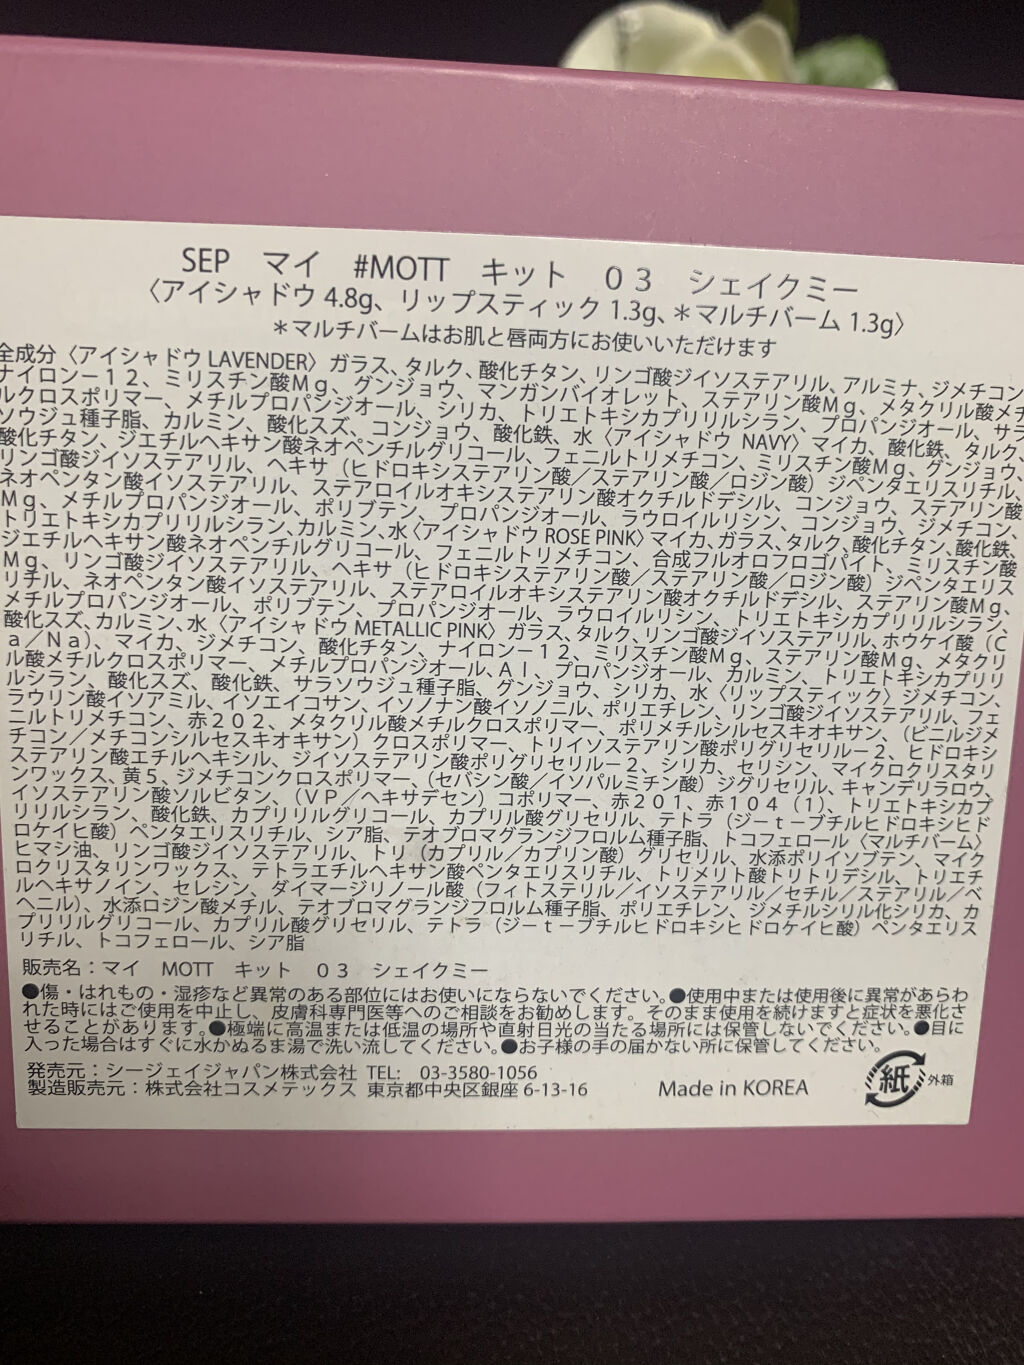 SEP マイ #MOTT キット 03 シェイクミー
〈アイシャドウ 4.8g、リップスティック 1.3g、＊マルチバーム 1.3g〉
＊マルチバームはお肌と唇両方にお使いいただけます
全成分〈アイシャドウ LAVENDER〉ガラス、タルク、酸化チタン、リンゴ酸ジイソステアリル、アルミナ、ジメチコン、
ナイロン－12、ミリスチン酸Mg、グンジョウ、マンガンバイオレット、ステアリン酸Mg、メタクリル酸メチ
ルクロスポリマー、メチルプロパンジオール、シリカ、トリエトキシカプリリルシラン、プロパンジオール、サラ
ソウジュ種子脂、カルミン、酸化スズ、コンジョウ、酸化鉄、水〈アイシャドウ NAVY〉マイカ、酸化鉄、タルク、
酸化チタン、ジエチルヘキサン酸ネオペンチルグリコール、フェニルトリメチコン、ミリスチン酸Mg、グンジョウ、
リンゴ酸ジイソステアリル、ヘキサ（ヒドロキシステアリン酸／ステアリン酸／ロジン酸）ジペンタエリスリチル、
ネオペンタン酸イソステアリル、ステアロイルオキシステアリン酸オクチルドデシル、コンジョウ、ステアリン酸
Mg、メチルプロパンジオール、ポリブテン、プロパンジオール、ラウロイルリシン、コンジョウ、ジメチコン、
トリエトキシカプリリルシラン、カルミン、水〈アイシャドウ ROSE PINK〉マイカ、ガラス、タルク、酸化チタン、酸化鉄、
ジエチルヘキサン酸ネオペンチルグリコール、フェニルトリメチコン、合成フルオロフロゴパイト、ミリスチン酸
Mg、リンゴ酸ジイソステアリル、ヘキサ（ヒドロキシステアリン酸／ステアリン酸／ロジン酸）ジペンタエリス
リチル、ネオペンタン酸イソステアリル、ステアロイルオキシステアリン酸オクチルドデシル、ステアリン酸Mg、
メチルプロパンジオール、ポリブテン、プロパンジオール、ラウロイルリシン、トリエトキシカプリリルシラン、
酸化スズ、カルミン、水〈アイシャドウ METALLIC PINK〉ガラス、タルク、リンゴ酸ジイソステアリル、ホウケイ酸（C
a／Na）、マイカ、ジメチコン、酸化チタン、ナイロン－12、ミリスチン酸Mg、ステアリン酸Mg、メタクリ
ル酸メチルクロスポリマー、メチルプロパンジオール、Al、プロパンジオール、カルミン、トリエトキシカプリリ
ルシラン、酸化スズ、酸化鉄、サラソウジュ種子脂、グンジョウ、シリカ、水〈リップスティック〉ジメチコン、
ラウリン酸イソアミル、イソエイコサン、イソノナン酸イソノニル、ポリエチレン、リンゴ酸ジイソステアリル、フェ
ニルトリメチコン、赤202、メタクリル酸メチルクロスポリマー、ポリメチルシルセスキオキサン、（ビニルジメ
チコン／メチコンシルセスキオキサン）クロスポリマー、トリイソステアリン酸ポリグリセリル－2、ヒドロキシ
ステアリン酸エチルヘキシル、ジイソステアリン酸ポリグリセリル－2、シリカ、セリシン、マイクロクリスタリ
ンワックス、黄5、ジメチコンクロスポリマー、（セバシン酸／イソパルミチン酸）ジグリセリル、キャンデリラロウ、
イソステアリン酸ソルビタン、（VP／ヘキサデセン）コポリマー、赤201、赤104（1）、トリエトキシカプ
リリルシラン、酸化鉄、カプリリルグリコール、カプリル酸グリセリル、テトラ（ジ－t－ブチルヒドロキシヒド
ロケイヒ酸）ペンタエリスリチル、シア脂、テオブロマグランジフロルム種子脂、トコフェロール〈マルチバーム〉
ヒマシ油、リンゴ酸ジイソステアリル、トリ（カプリル／カプリン酸）グリセリル、水添ポリイソブテン、マイク
ロクリスタリンワックス、テトラエチルヘキサン酸ペンタエリスリチル、トリメリト酸トリトリデシル、トリエチ
ルヘキサノイン、セレシン、ダイマージリノール酸（フィトステリル／イソステアリル／セチル／ステアリル／ベ
ヘニル）、水添ロジン酸メチル、テオブロマグランジフロルム種子脂、ポリエチレン、ジメチルシリル化シリカ、カ
プリリルグリコール、カプリル酸グリセリル、テトラ（ジ－t－ブチルヒドロキシヒドロケイヒ酸）ペンタエリス
リチル、トコフェロール、シア脂
販売名：マイ MOTT キット 03 シェイクミー
●傷・はれもの・湿疹など異常のある部位にはお使いにならないでください。●使用中または使用後に異常があらわ
れた時にはご使用を中止し、皮膚科専門医等へのご相談をお勧めします。そのまま使用を続けますと症状を悪化さ
せることがあります。●極端に高温または低温の場所や直射日光の当たる場所には保管しないでください。●目に
入った場合はすぐに水かぬるま湯で洗い流してください。●お子様の手の届かない所に保管してください。
発売元：シージェイジャパン株式会社 TEL: 03-3580-1056
製造販売元：株式会社コスメテックス 東京都中央区銀座 6-13-16
Made in KOREA
紙 外箱